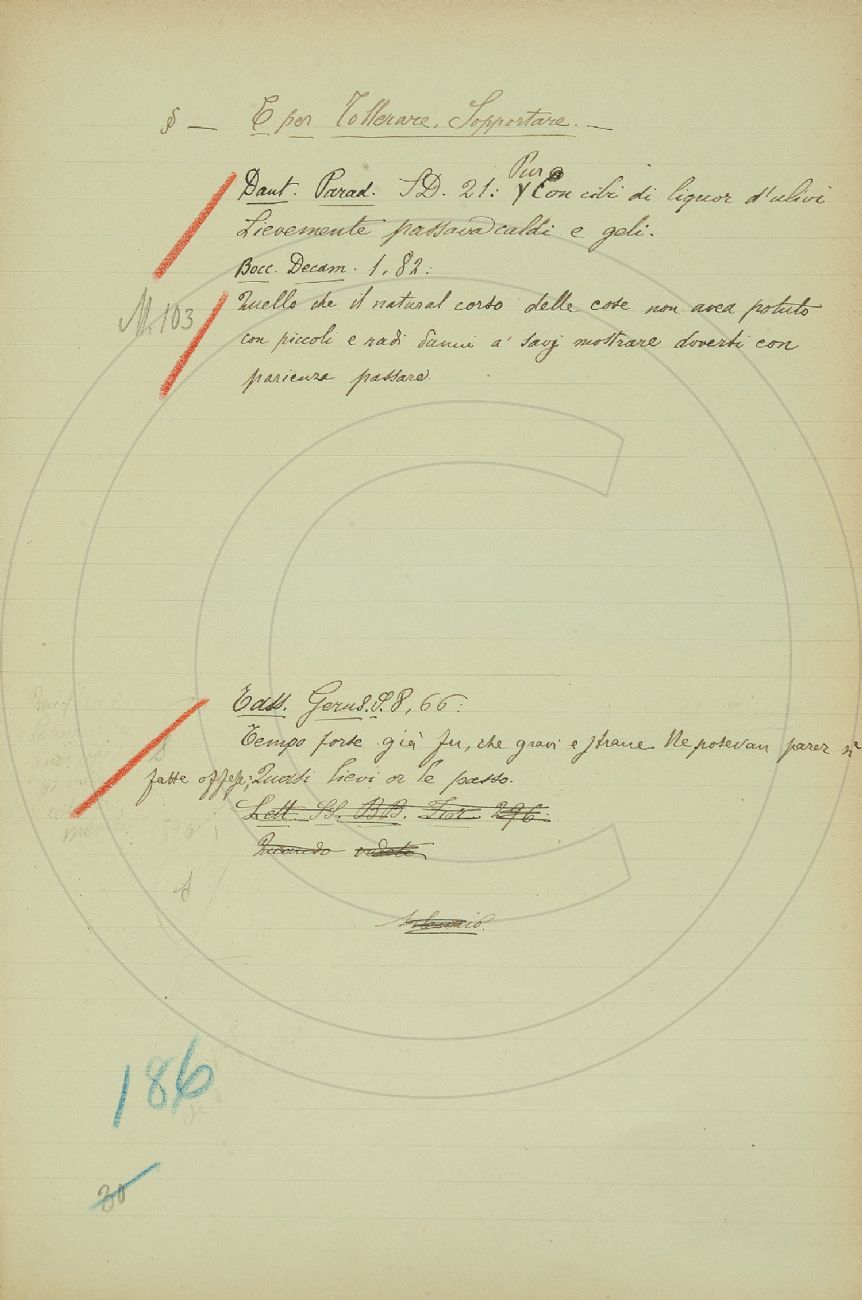 § — E per Tollerare, Sopportare. —
Dant. Parad. SD. 21: Pur Con cibi di liquor d'ulivi
Lievemente passava caldi e geli.
Bocc. Decam. 1, 82:
M. 103
Quello che il natural corso delle cose non avea potuto
con piccoli e radi danni a' savj mostrare doversi con
pazienza passare.
Tass. Gerus. 8, 66:
Tempo forse già fu, che gravi e strane Ne potevan parer sì
fatte offese; Quasi lievi or le passo.
Lett. SS. BB. Fior. 296:
186
20